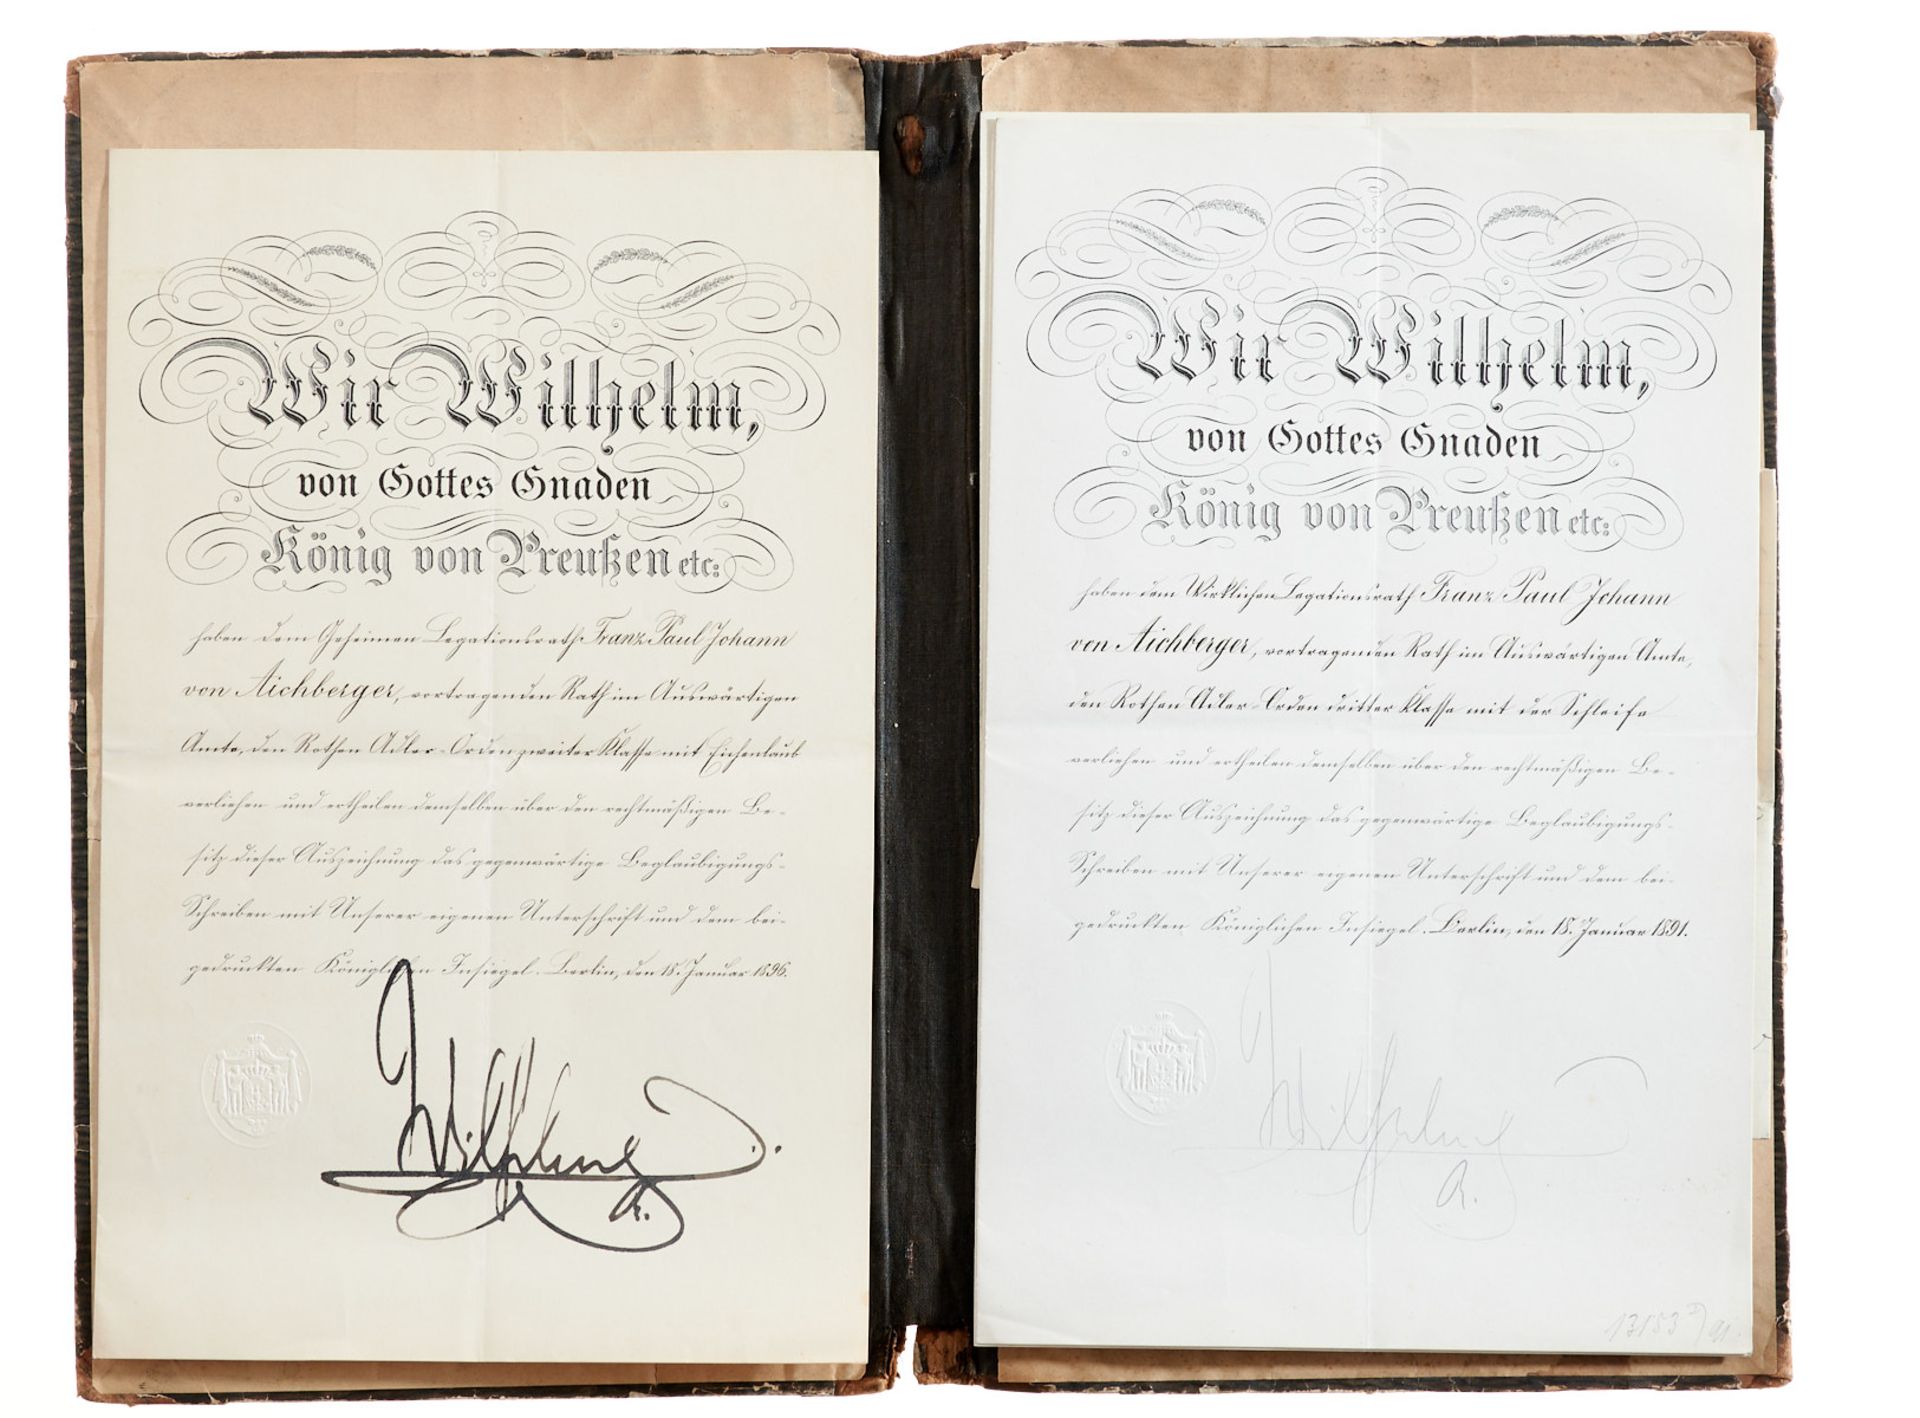 Wir Wilhelm,
von Gottes Gnaden
König von Preußen etc:
haben dem Geheimen Legationsrath Franz Paul Johann
von Aichberger, vortragenden Rath im Auswärtigen
Amte, den Rothen Adler-Orden zweiter Klasse mit Eichenlaub
verliehen und ertheilen demselben über den rechtmäßigen Be-
sitz dieser Auszeichnung das gegenwärtige Beglaubigungs-
Schreiben mit Unserer eigenen Unterschrift und dem bei-
gedruckten Königlichen Insiegel. Berlin, den 18. Januar 1896.
Wilhelm
R.
Wir Wilhelm,
von Gottes Gnaden
König von Preußen etc:
haben dem Wirklichen Legationsrath Franz Paul Johann
von Aichberger, vortragenden Rath im Auswärtigen Amte,
den Rothen Adler-Orden dritter Klasse mit der Schleife
verliehen und ertheilen demselben über den rechtmäßigen Be-
sitz dieser Auszeichnung das gegenwärtige Beglaubigungs-
Schreiben mit Unserer eigenen Unterschrift und dem bei-
gedruckten Königlichen Insiegel. Berlin, den 18. Januar 1891.
Wilhelm
R.
13153